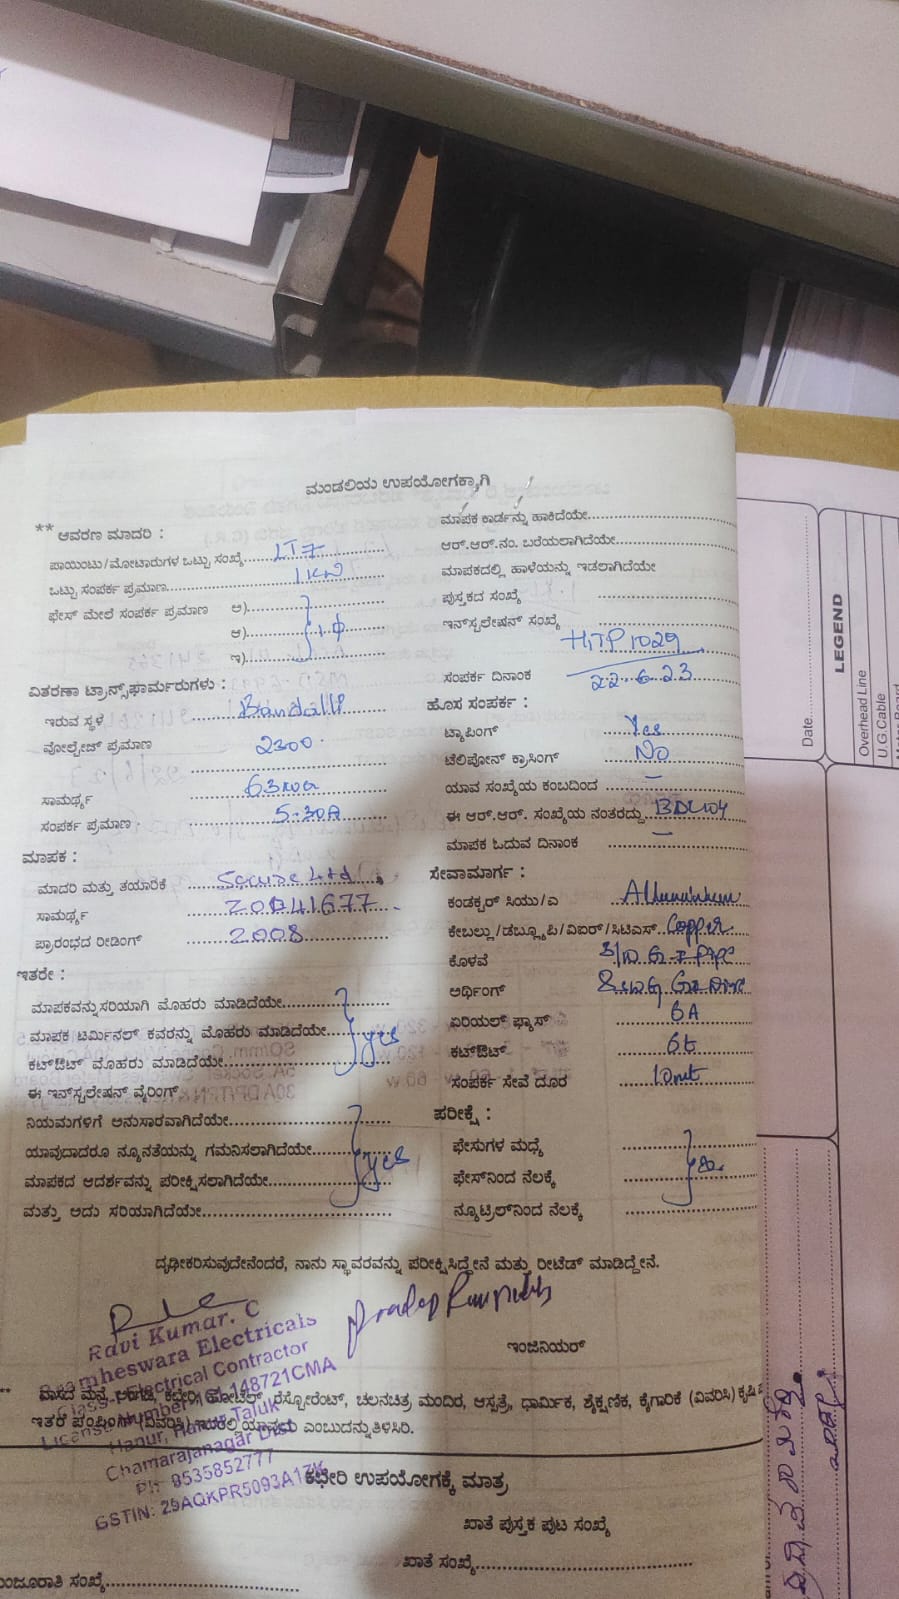 ಮಂಡಲಿಯ ಉಪಯೋಗಕ್ಕಾಗಿ
** ಆವರಣ ಮಾದರಿ :
ಪಾಯಿಂಟು/ಮೋಟಾರುಗಳ ಒಟ್ಟು ಸಂಖ್ಯೆ LT7
ಒಟ್ಟು ಸಂಪರ್ಕ ಪ್ರಮಾಣ 1KW
ಫೇಸ್ ಮೇಲೆ ಸಂಪರ್ಕ ಪ್ರಮಾಣ ಅ)
ಆ) 1.ф
ಇ)
ವಿತರಣಾ ಟ್ರಾನ್ಸ್‌ಫಾರ್ಮರುಗಳು :
ಇರುವ ಸ್ಥಳ Bandalli
ವೋಲ್ಟೇಜ್ ಪ್ರಮಾಣ 2300
ಸಾಮರ್ಥ್ಯ 63
ಸಂಪರ್ಕ ಪ್ರಮಾಣ 5-30A
ಮಾಪಕ :
ಮಾದರಿ ಮತ್ತು ತಯಾರಿಕೆ Secure Ltd
ಸಾಮರ್ಥ್ಯ 20041677
ಪ್ರಾರಂಭದ ರೀಡಿಂಗ್ 2008
ಇತರೇ :
ಮಾಪಕವನ್ನು ಸರಿಯಾಗಿ ಮೊಹರು ಮಾಡಿದೆಯೇ
ಮಾಪಕ ಟರ್ಮಿನಲ್ ಕವರನ್ನು ಮೊಹರು ಮಾಡಿದೆಯೇ yes
ಕಟ್‌ಔಟ್ ಮೊಹರು ಮಾಡಿದೆಯೇ
ಈ ಇನ್‌ಸ್ಟಲೇಷನ್ ವೈರಿಂಗ್
ನಿಯಮಗಳಿಗೆ ಅನುಸಾರವಾಗಿದೆಯೇ
ಯಾವುದಾದರೂ ನ್ಯೂನತೆಯನ್ನು ಗಮನಿಸಲಾಗಿದೆಯೇ yes
ಮಾಪಕದ ಆದರ್ಶವನ್ನು ಪರೀಕ್ಷಿಸಲಾಗಿದೆಯೇ
ಮತ್ತು ಅದು ಸರಿಯಾಗಿದೆಯೇ
ಮಾಪಕ ಕಾರ್ಡನ್ನು ಹಾಕಿದೆಯೇ
ಆರ್.ಆರ್.ನಂ. ಬರೆಯಲಾಗಿದೆಯೇ
ಮಾಪಕದಲ್ಲಿ ಹಾಳೆಯನ್ನು ಇಡಲಾಗಿದೆಯೇ
ಪುಸ್ತಕದ ಸಂಖ್ಯೆ
ಇನ್‌ಸ್ಟಲೇಷನ್ ಸಂಖ್ಯೆ HTP1029
ಸಂಪರ್ಕ ದಿನಾಂಕ 22.6.23
ಹೊಸ ಸಂಪರ್ಕ :
ಟ್ಯಾಪಿಂಗ್ Yes
ಟೆಲಿಪೋನ್ ಕ್ರಾಸಿಂಗ್ No
ಯಾವ ಸಂಖ್ಯೆಯ ಕಂಬದಿಂದ –
ಈ ಆರ್.ಆರ್. ಸಂಖ್ಯೆಯ ನಂತರದ್ದು BDL104
ಮಾಪಕ ಓದುವ ದಿನಾಂಕ –
ಸೇವಾಮಾರ್ಗ :
ಕಂಡಕ್ಟರ್ ಸಿಯು/ಎ
ಕೇಬಲ್ಲು/ಡಬ್ಲ್ಯೂಪಿ/ವಿಐರ್/ಸಿಟಿಎಸ್ Copper
ಕೊಳವೆ
ಅರ್ಥಿಂಗ್
ಏರಿಯಲ್ ಫ್ಯೂಸ್ 6A
ಕಟ್‌ಔಟ್
ಸಂಪರ್ಕ ಸೇವೆ ದೂರ 10mt
ಪರೀಕ್ಷೆ :
ಫೇಸುಗಳ ಮಧ್ಯೆ
ಫೇಸ್‌ನಿಂದ ನೆಲಕ್ಕೆ
ನ್ಯೂಟ್ರಿಲ್‌ನಿಂದ ನೆಲಕ್ಕೆ
ದೃಢೀಕರಿಸುವುದೇನೆಂದರೆ, ನಾನು ಸ್ಥಾವರವನ್ನು ಪರೀಕ್ಷಿಸಿದ್ದೇನೆ ಮತ್ತು ರೀಟೆಡ್ ಮಾಡಿದ್ದೇನೆ.
ಇಂಜಿನಿಯರ್
Ravi Kumar. C
Electricals
Electrical Contractor
148721CMA
Hanur, Taluk
Chamarajanagar Dist
Ph: 9535852777
GSTIN: 29AQKPR5093A1ZK
** ವಾಸದ ಮನೆ, ಅಂಗಡಿ, ಕಛೇರಿ, ಹೋಟೆಲ್, ರೆಸ್ಟೋರೆಂಟ್, ಚಲನಚಿತ್ರ ಮಂದಿರ, ಆಸ್ಪತ್ರೆ, ಧಾರ್ಮಿಕ, ಶೈಕ್ಷಣಿಕ, ಕೈಗಾರಿಕೆ (ವಿವರಿಸಿ) ಕೃಷಿ
ಇತರೆ ಪಂಪಿಂಗ್ (ವಿವರಿಸಿ) ಇವುಗಳಲ್ಲಿ ಯಾವುದು ಎಂಬುದನ್ನು ತಿಳಿಸಿರಿ.
ಕಛೇರಿ ಉಪಯೋಗಕ್ಕೆ ಮಾತ್ರ
ಖಾತೆ ಪುಸ್ತಕ ಪುಟ ಸಂಖ್ಯೆ
ಖಾತೆ ಸಂಖ್ಯೆ
ಮಂಜೂರಾತಿ ಸಂಖ್ಯೆ
Date
LEGEND
Overhead Line
U.G.Cable